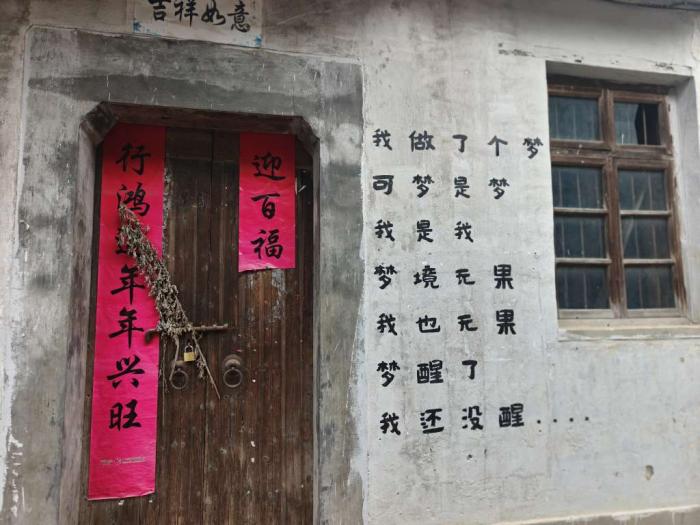 吉祥如意
行鸿运年年兴旺
迎百福
我做了个梦
可梦是梦
我是我
梦境无果
我也无果
梦醒了
我还没醒....